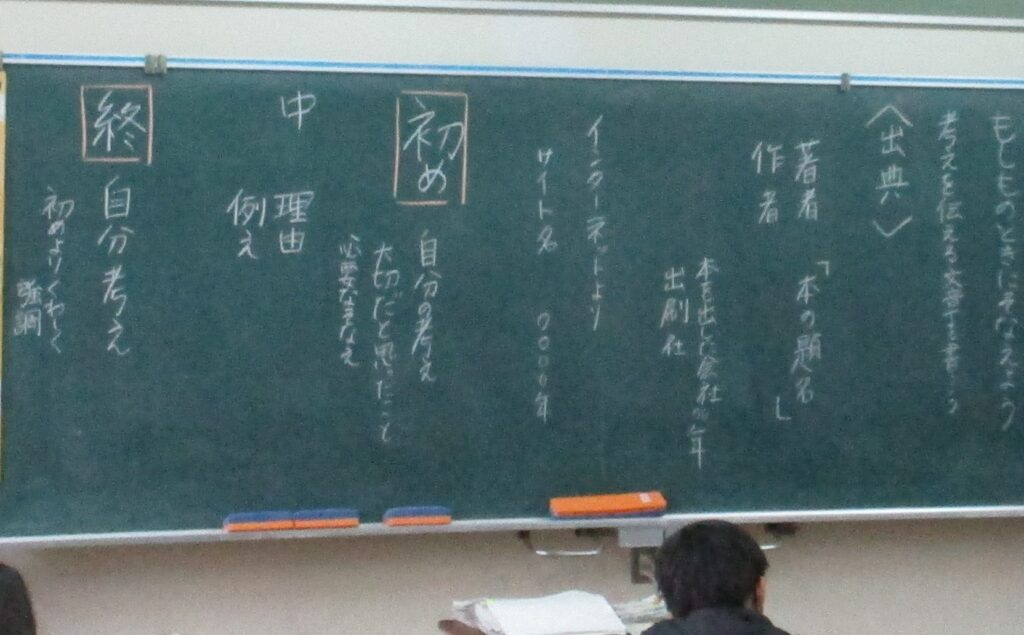 もしものときにそなえよう
考えを伝える文章を書こう
〈出典〉
著者 「本の題名」
作者
本を出した会社 年
出刷社
インターネットより
サイト名 0000年
初め 自分の考え
大切だと思ったこと
必要なそなえ
中 理由
例え
終 自分考え
初めよりくわしく
強調